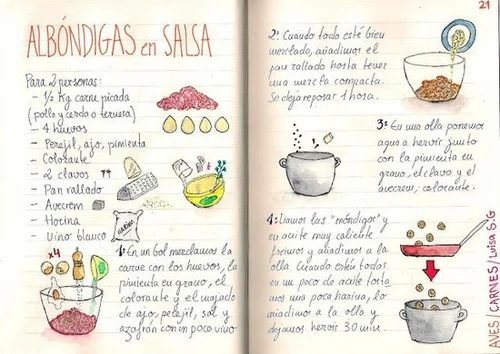 ALBÓNDIGAS en SALSA
Para 2 personas:
- 1/2 Kg carne picada
(pollo y cerdo o ternera)
- 4 huevos
- Perejil, ajo, pimienta
- Colorante
- 2 clavos
- Pan rallado
- Avecrem
- Harina
- Vino blanco
HARINA
x4
1º En un bol mezclamos la
carne con los huevos, la
pimienta en grano, el
colorante y el majado
de ajo, perejil, sal y
azafrán con un poco vino
21
2º Cuando todo esté bien
mezclado, añadimos el
pan rallado hasta tener
una mezcla compacta.
Se deja reposar 1 hora.
3º En una olla ponemos
agua a hervir junto
con la pimienta en
grano, el clavo y el
avecrem, colorante.
4º Liamos las "móndigas" y
en aceite muy caliente
freímos y añadimos a la
olla. Cuando estén todas
en un poco de aceite tosta
mos una poca harina, lo
añadimos a la olla y
dejamos hervir 30 min.
CARNES / Luisa S.G